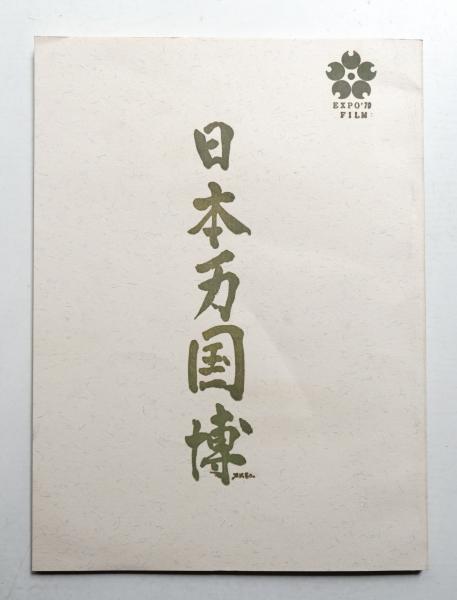 EXPO'70
FILM
日本万国博